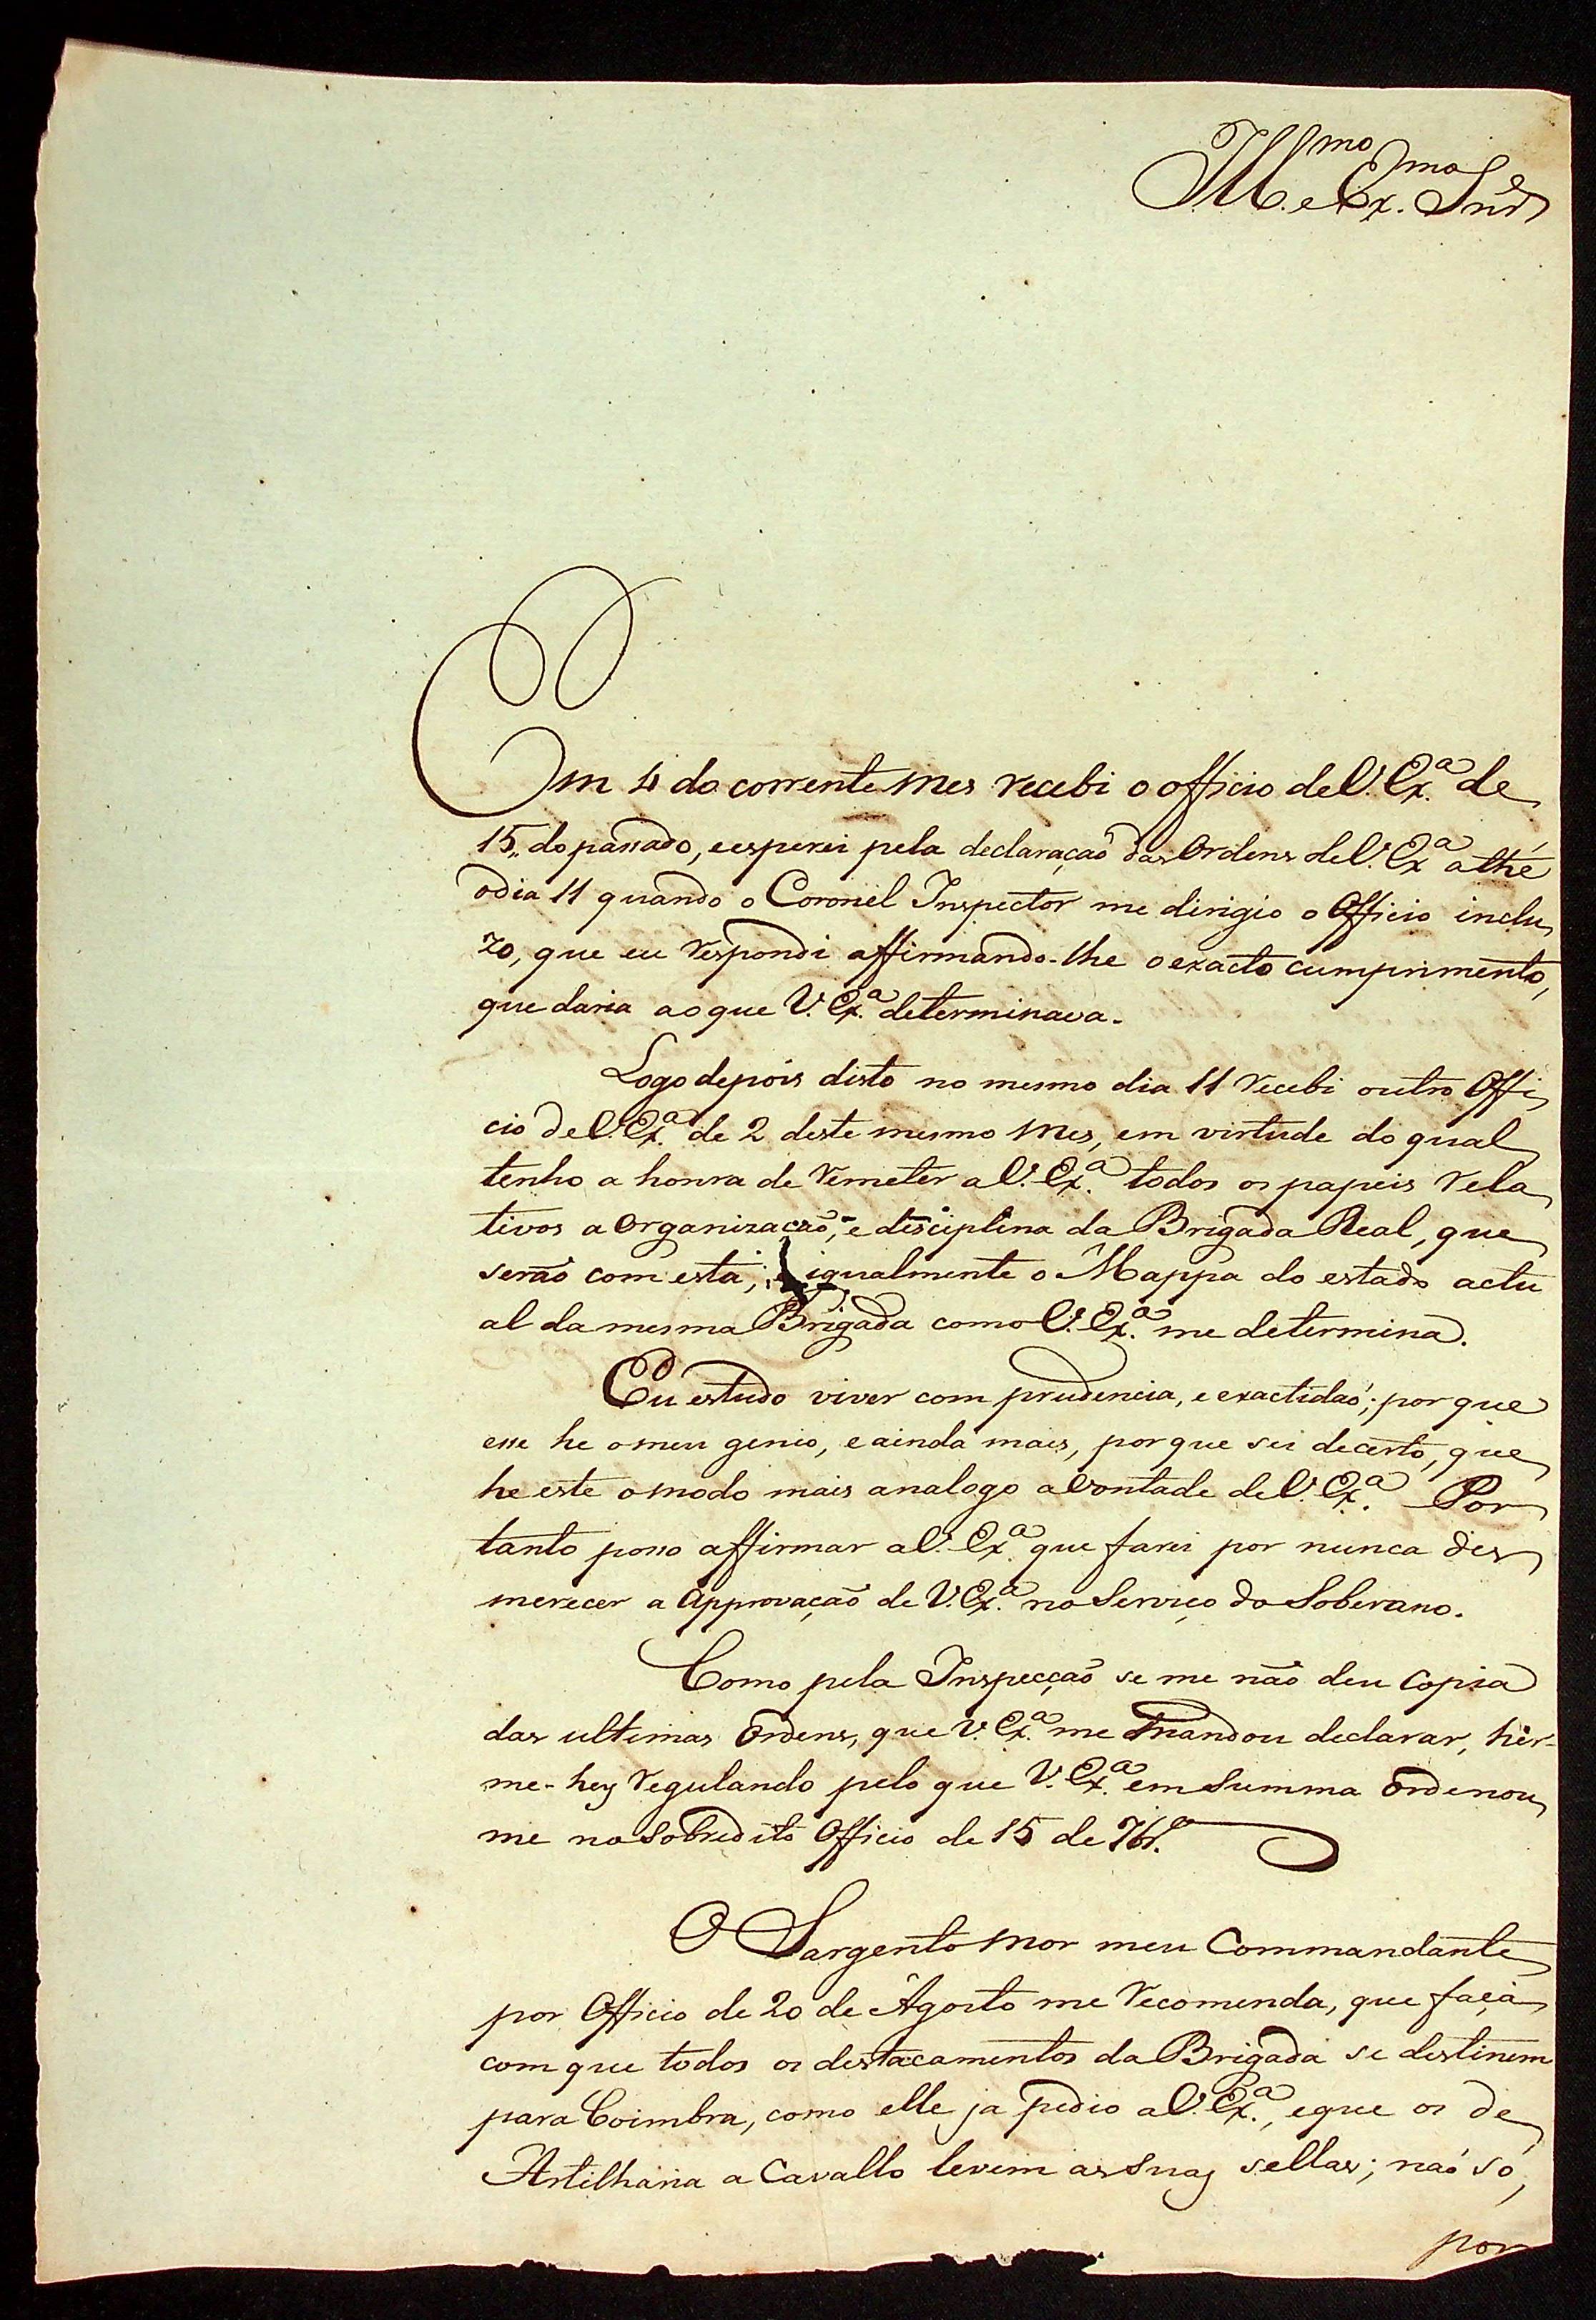 Ill.mo e Ex.mo Snr.
Em 4 do corrente mes recebi o officio de V. Ex.ª de
15,, do passado, e esperei pela declaração das Ordens de V. Ex.ª athé
o dia 11 quando o Coronel Inspector me dirigio o Officio inclu
zo, que eu respondi affirmando-lhe o exacto cumprimento,
que daria ao que V. Ex.ª determinava.
Logo depois disto no mesmo dia 11 recebi outro Offi
cio de V. Ex.ª de 2 deste mesmo mes, em virtude do qual
tenho a honra de remeter a V. Ex.ª todos os papeis rela
tivos a Organização, e disciplina da Brigada Real, que
serão com esta; e igualmente o Mappa do estado actu
al da mesma Brigada como V. Ex.ª me determina.
Eu estudo viver com prudencia, e exactidaõ; por que
esse he o meu genio, e ainda mais, por que sei de certo, que
he este o modo mais analogo a vontade de V. Ex.ª Por
tanto posso affirmar a V. Ex.ª que farei por nunca des
merecer a Approvação de V. Ex.ª no Serviço do Soberano.
Como pela Inspecção se me não deu Copia
das ultimas Ordens, que V. Ex.ª me mandou declarar, hir-
me-hey regulando pelo que V. Ex.ª em summa Ordenou
me no sobredito Officio de 15 de 7br.º
O Sargento mor meu Commandante
por Officio de 20 de Agosto me recomenda, que faça
com que todos os destacamentos da Brigada se destinem
para Coimbra, como elle ja pedio a V. Ex.ª, e que os de
Artilharia a Cavallo levem as suas sellas; naõ só,
por